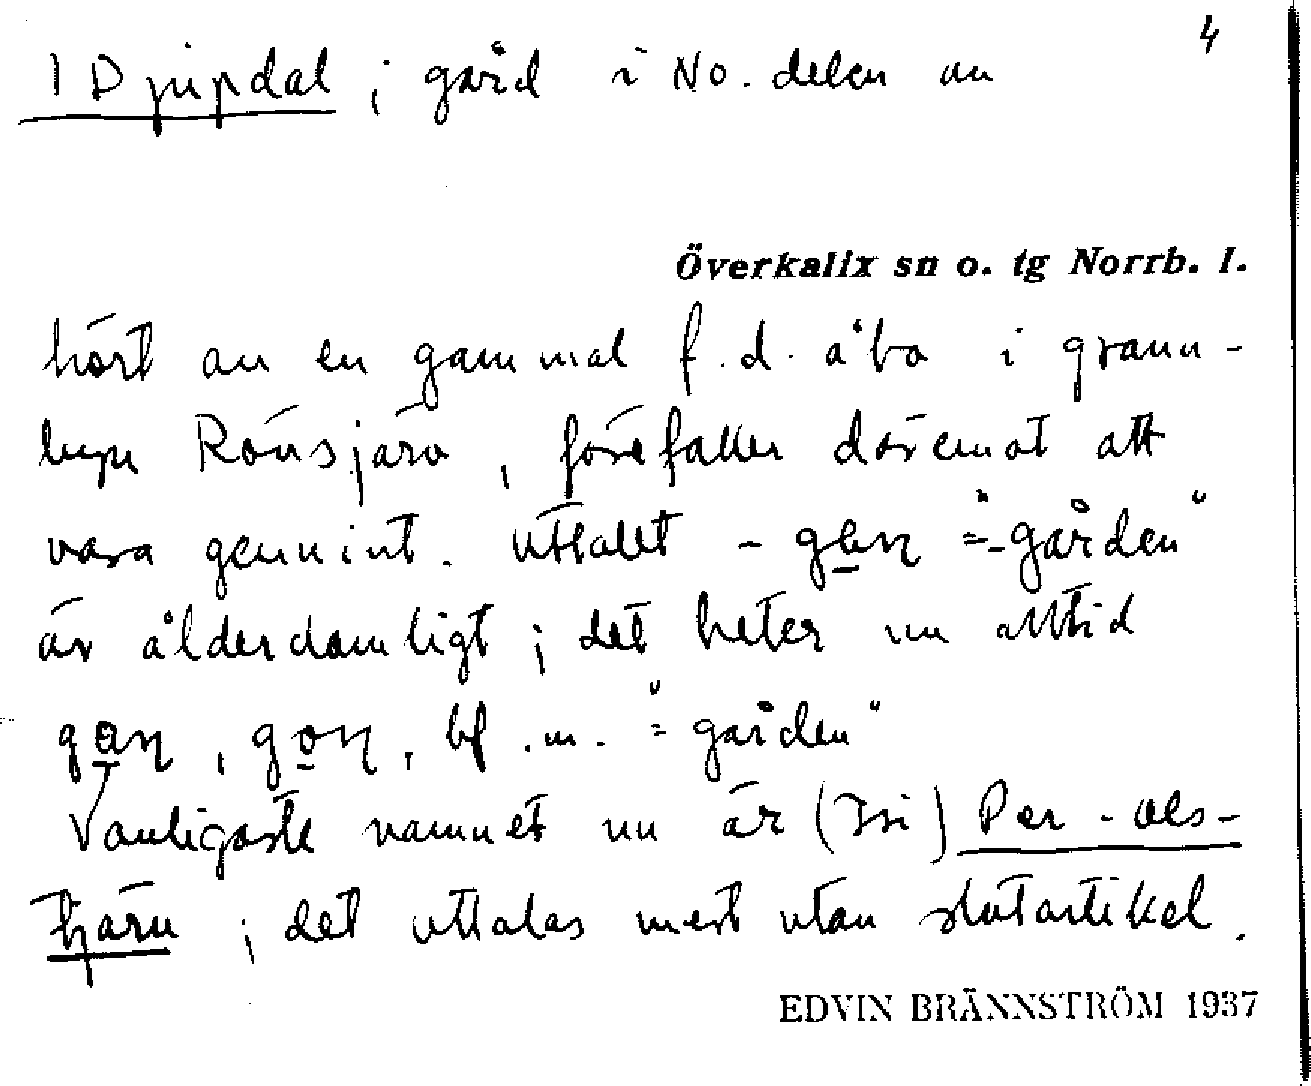 4
I Djupdal ; gård i NO. delen av
Överkalix sn o. tg Norrb. l.
hört av en gammal f.d. åbo i grann-
byn Rönsjärv , förefaller däremot att
vara genuint. Uttalet - gɑn = "-gården"
är ålderdomligt ; det heter nu alltid
gɑn , gon , bf. m. = "gården"
Vanligaste namnet nu är (Isi) Per-ols-
tjärn ; det uttalas mest utan slutartikel.
EDVIN BRÄNNSTRÖM 1937